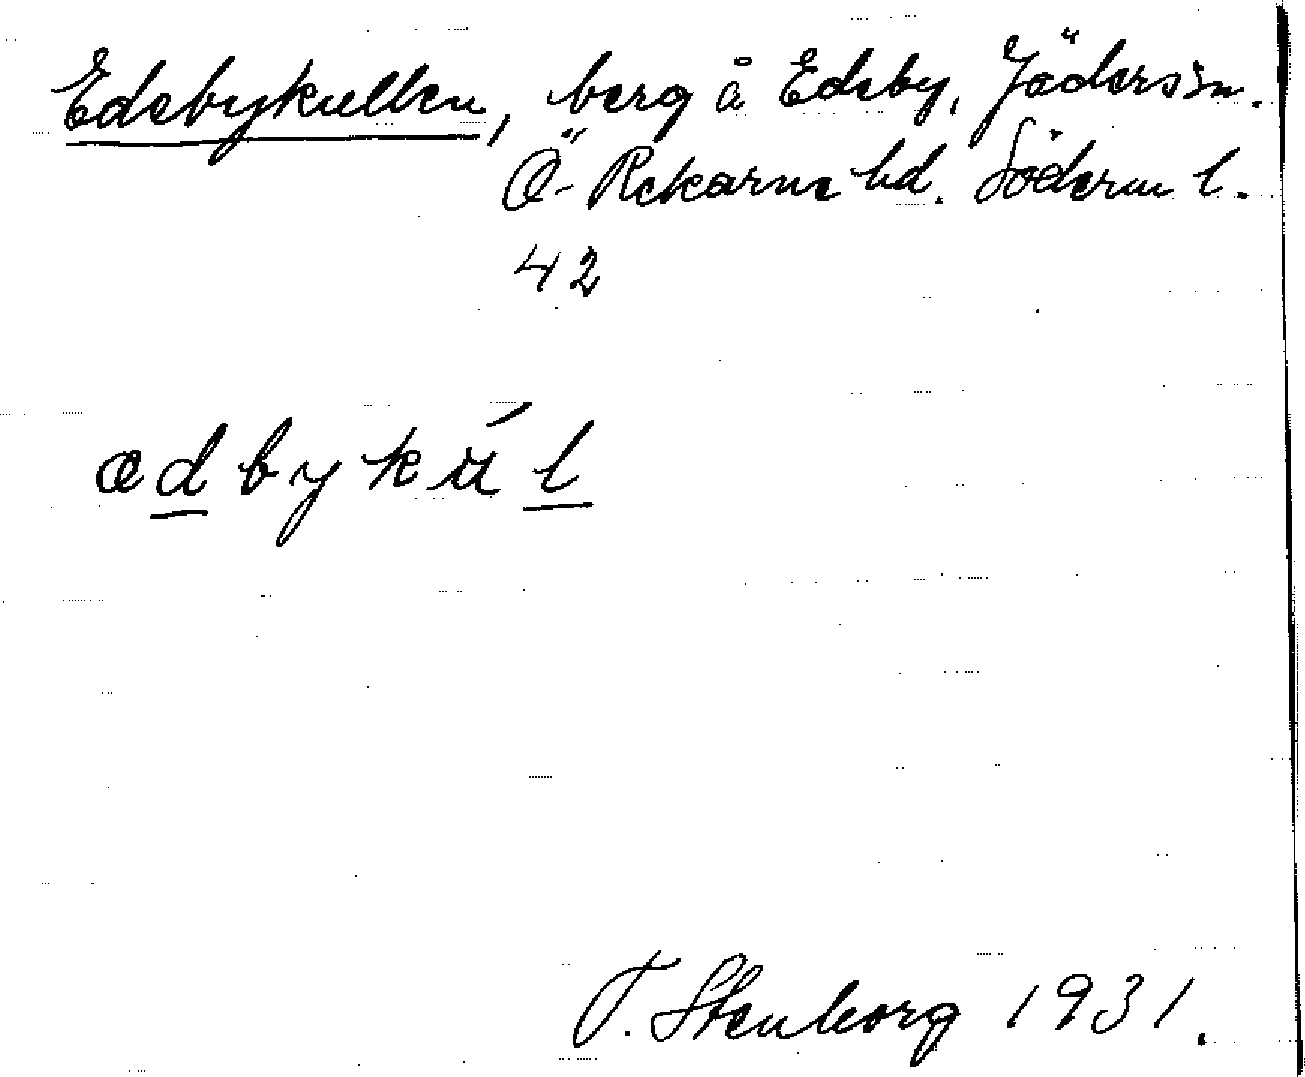 Edebykullen, berg å Edeby, Jäders sn.
Ö-Rekarne hd. Söderm l.
42
ædbykúl
T. Stenborg 1931.